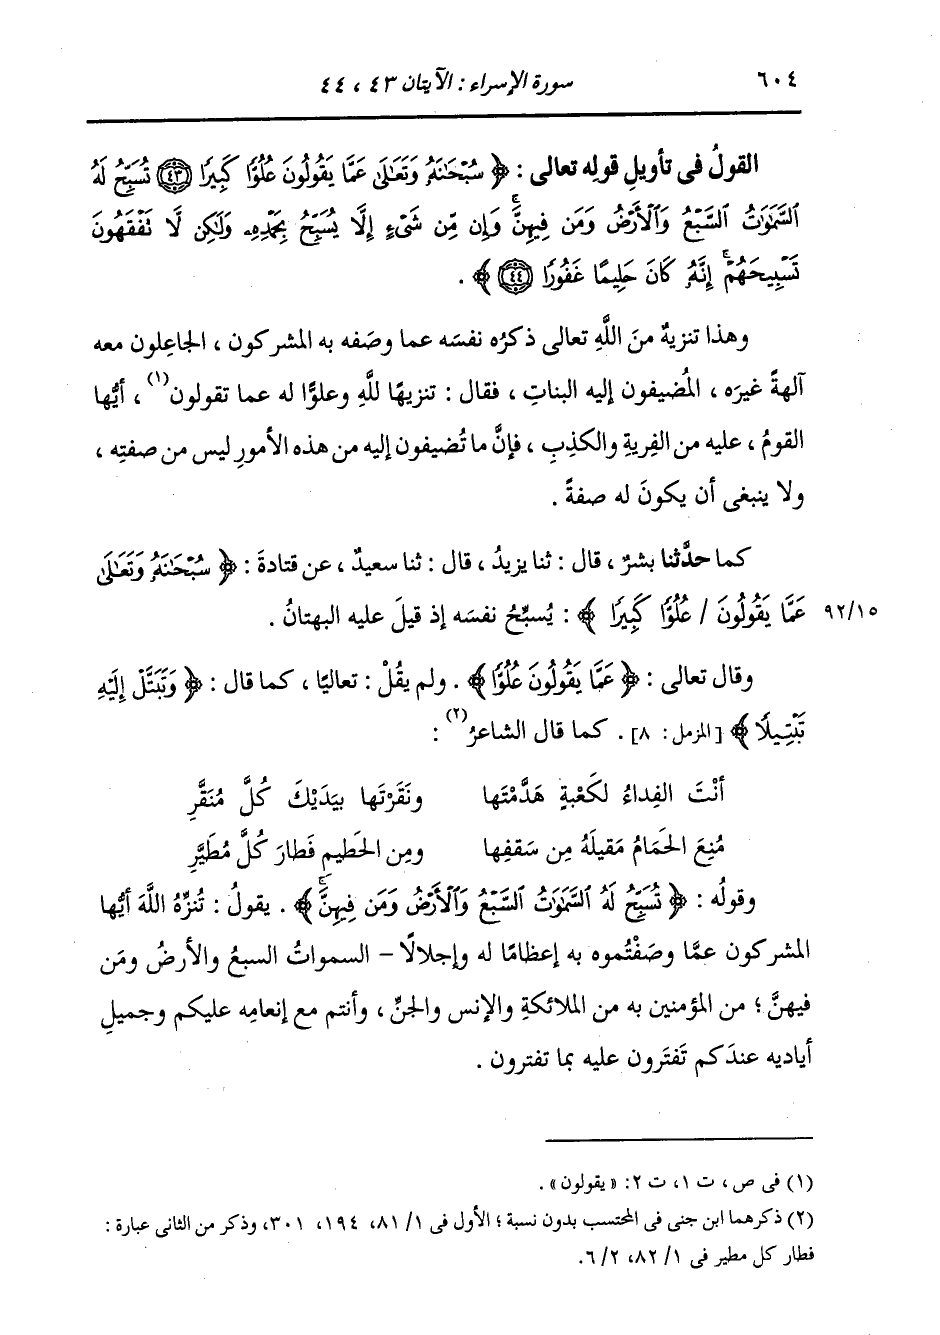 ٦٠٤ سورة الإسراء : الآيتان ٤٣ ، ٤٤
القولُ فى تأويلِ قولِه تعالى : ﴿ سُبْحَٰنَهُۥ وَتَعَٰلَىٰ عَمَّا يَقُولُونَ عُلُوًّا كَبِيرًا ﴿٤٣﴾ تُسَبِّحُ لَهُ
ٱلسَّمَٰوَٰتُ ٱلسَّبْعُ وَٱلْأَرْضُ وَمَن فِيهِنَّ ۚ وَإِن مِّن شَىْءٍ إِلَّا يُسَبِّحُ بِحَمْدِهِۦ وَلَٰكِن لَّا نَفْقَهُونَ
تَسْبِيحَهُمْ ۚ إِنَّهُۥ كَانَ حَلِيمًا غَفُورًا ﴿٤٤﴾ ﴾ .
وهذا تنزيهٌ منَ اللَّهِ تعالى ذكرُه نفسَه عما وصَفه به المشركون ، الجاعِلون معه
آلهةً غيرَه ، المُضيفون إليه البناتِ ، فقال : تنزيهًا للَّهِ وعلوًّا له عما تقولون(١) ، أيُّها
القومُ ، عليه من الفِريةِ والكذبِ ، فإنَّ ما تُضيفون إليه من هذه الأمورِ ليس من صفتِه ،
ولا ينبغى أن يكونَ له صفةً .
كما حدَّثنا بشرٌ ، قال : ثنا يزيدُ ، قال : ثنا سعيدٌ ، عن قتادةَ : ﴿ سُبْحَٰنَهُۥ وَتَعَٰلَىٰ
٩٢/١٥ عَمَّا يَقُولُونَ / عُلُوًّا كَبِيرًا ﴾ : يُسبِّحُ نفسَه إذ قيلَ عليه البهتانُ .
وقال تعالى : ﴿ عَمَّا يَقُولُونَ عُلُوًّا ﴾ . ولم يقُلْ : تعاليًا ، كما قال : ﴿ وَتَبَتَّلْ إِلَيْهِ
تَبْتِيلًا ﴾ [المزمل: ٨] . كما قال الشاعرُ(٢) :
أنْتَ الفِداءُ لكَعْبةٍ هَدَّمْتَها ونَقَرْتَها بيَدَيْكَ كُلَّ مُنَقَّرِ
مُنِعَ الحَمَامُ مَقيلَهُ مِن سَقفِها ومِن الحَطيمِ فَطارَ كُلَّ مُطَيَّرِ
وقولُه : ﴿ تُسَبِّحُ لَهُ ٱلسَّمَٰوَٰتُ ٱلسَّبْعُ وَٱلْأَرْضُ وَمَن فِيهِنَّ ۚ ﴾ . يقولُ : تُنزِّهُ اللَّهَ أيُّها
المشركون عمَّا وصَفْتُموه به إعظامًا له وإجلالًا – السمواتُ السبعُ والأرضُ ومَن
فيهنَّ ؛ من المؤمنين به من الملائكةِ والإنسِ والجنِّ ، وأنتم مع إنعامِه عليكم وجميلِ
أياديه عندَكم تَفتَرون عليه بما تفترون .
(١) فى ص ، ت ١ ، ت ٢: «يقولون» .
(٢) ذكرهما ابن جنى فى المحتسب بدون نسبة ؛ الأول فى ١/ ٨١، ١٩٤، ٣٠١، وذكر من الثانى عبارة :
فطار كل مطير فى ١/ ٨٢، ٢/ ٦.